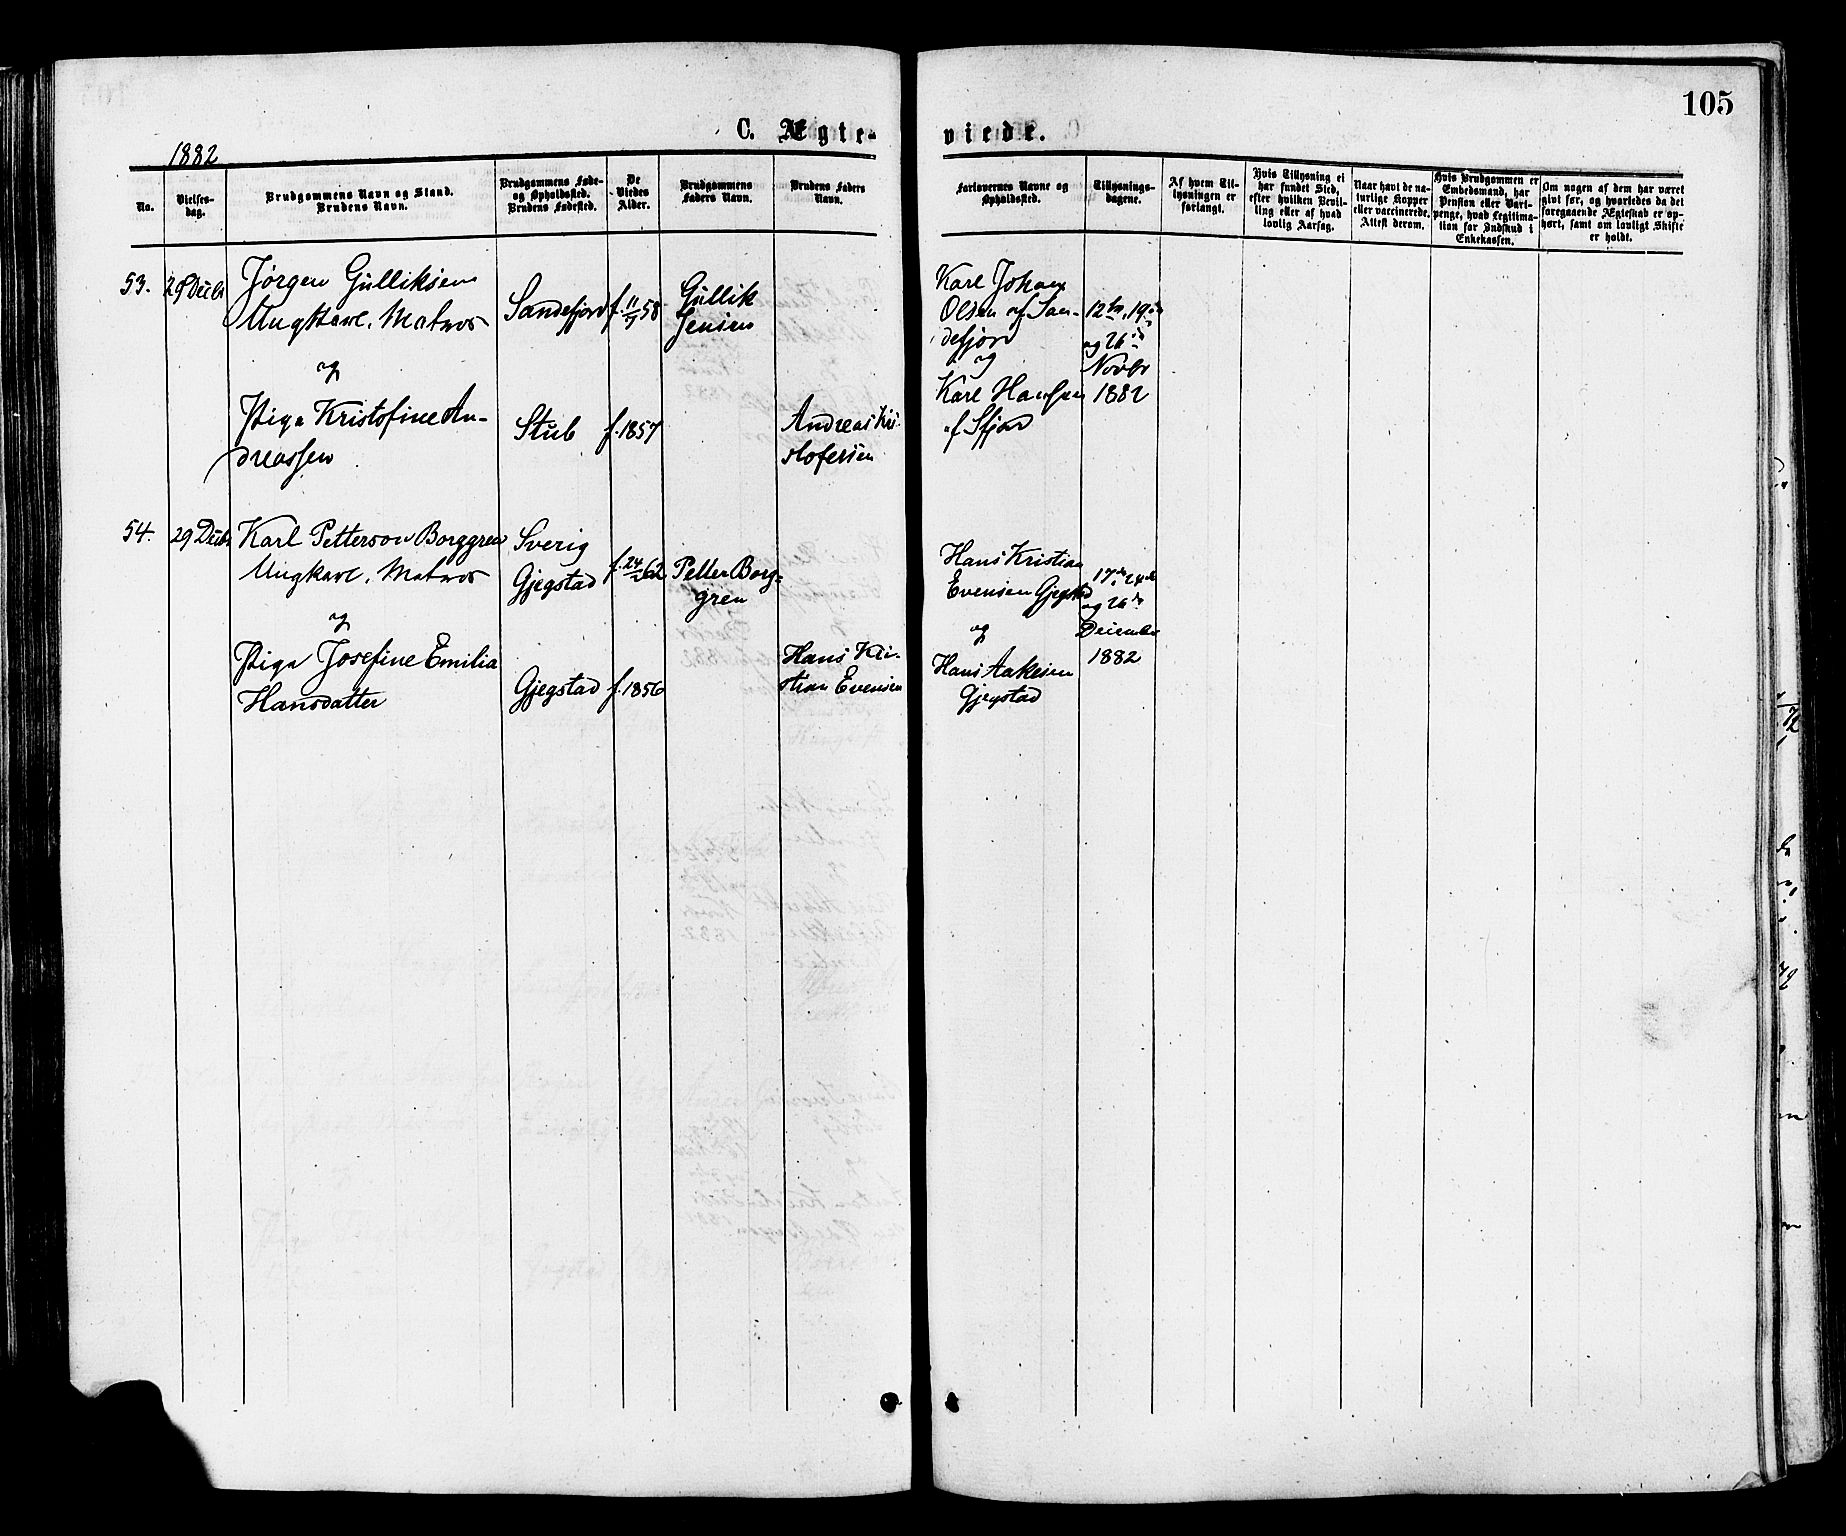 105
C. Ægte-
viede.
1882
No.
Vielses-
dag.
Brudgommens Navn og Stand.
Brudens Navn.
Brudgommens Føde-
og Opholdssted.
Brudens Fødested.
De
Viedes
Alder.
Brudgommens
Faders Navn.
Brudens Faders
Navn.
Forlovernes Navne og
Opholdssted.
Tillysnings-
dagene.
Af hvem Til-
lysningen er
forlangt.
Hvis Tillysning ei
har fundet Sted,
efter hvilken Bevil-
ling eller af hvad
lovlig Aarsag.
Naar havt de na-
turlige Kopper
eller vaccinerede.
Attest derom.
Hvis Brudgommen er
Embedsmand, har
Pension eller Vart-
penge, hvad Legitima-
tion for Indskud i
Enkekassen.
Om nogen af dem har været
givt før, og hvorledes da det
foregaaende Ægteskab er op-
hørt, samt om lovligt Skifte
er holdt.
53.
29 Decbr
Jørgen Gulliksen
Ungkarl. Matros
og
Pige Kristofine An-
dreassen
Sandefjord
Stub
f. 11/9 58
f. 1857
Gullik
Jensen
Andreas Kri-
stofersen
Karl Johan
Olsen af San-
defjord
og
Karl Hansen
af Sfjord
12te, 19de
og 26de
Novbr
1882
54.
29 Decbr
Karl Petterson Borggren
Ungkarl. Matros
og
Pige Josefine Emilia
Hansdatter
Sverig
Gjegstad
Gjegstad
f. 24/ 62
f. 1856
Petter Borg-
gren
Hans Kri-
stian Evensen
Hans Kristian
Evensen Gjegstad
og
Hans Aakesen
Gjegstad
17de 24de
og 26de
December
1882